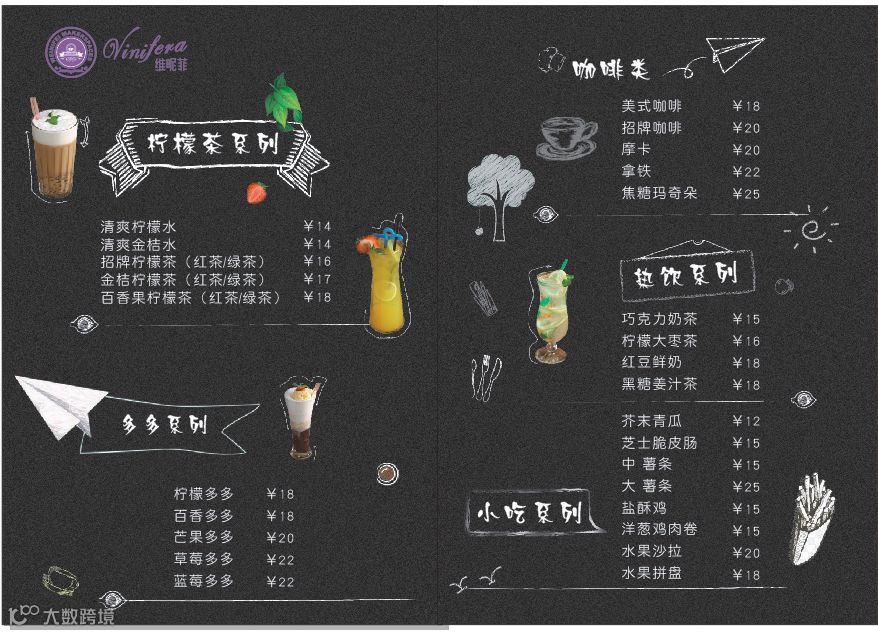 Vinifera
维呢菲
柠檬茶系列
清爽柠檬水 ¥14
清爽金桔水 ¥14
招牌柠檬茶（红茶/绿茶） ¥16
金桔柠檬茶（红茶/绿茶） ¥17
百香果柠檬茶（红茶/绿茶） ¥18
多多系列
柠檬多多 ¥18
百香多多 ¥18
芒果多多 ¥20
草莓多多 ¥22
蓝莓多多 ¥22
咖啡类
美式咖啡 ¥18
招牌咖啡 ¥20
摩卡 ¥20
拿铁 ¥22
焦糖玛奇朵 ¥25
热饮系列
巧克力奶茶 ¥15
柠檬大枣茶 ¥16
红豆鲜奶 ¥18
黑糖姜汁茶 ¥18
小吃系列
芥末青瓜 ¥12
芝士脆皮肠 ¥15
中 薯条 ¥15
大 薯条 ¥25
盐酥鸡 ¥15
洋葱鸡肉卷 ¥15
水果沙拉 ¥20
水果拼盘 ¥18
大数跨境